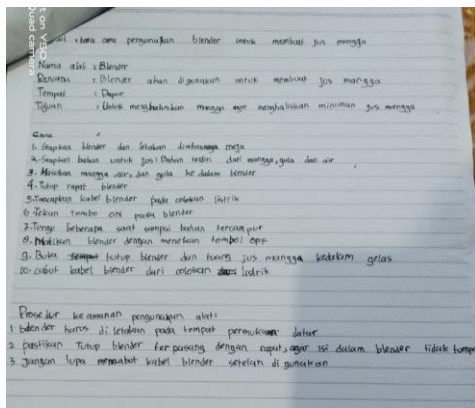 t on VIVO
Quad camera
: tata cara pengunakan blender untuk membuat jus mangga
Nama alat : Blender
Rencana : Blender akan digunakan untuk membuat jus mangga
Tempat : Dapur
Tujuan : Untuk menghaluskan mangga agar menghasilkan minuman jus mangga
Cara
1. Siapkan blender dan letakan diatas meja
2. Siapkan bahan untuk jus. Bahan terdiri dari mangga, gula dan air
3. Masukan mangga, air, dan gula ke dalam blender
4. Tutup rapat blender
5. Tancapkan kabel blender pada colokan listrik
6. Tekan Tombo ON pada blender
7. Tunggu beberapa saat sampai bahan tercampur
8. Matikan blender dengan menekan tombol OFF
9. Buka tutup blender dan tuang jus mangga kedalam gelas
10. cabut kabel blender dari colokan listrik
Prosedur keamanan pengunakan alat:
1 blender harus di letakan pada tempat permukaan datar
2 pastikan Tutup blender terpasang dengan rapat, agar isi dalam blender tidak
3. Jangan lupa mencabut kabel blender setelah di gunakan